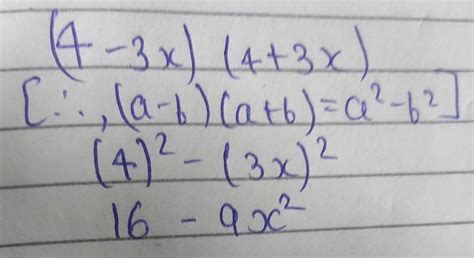 (4 - 3x) (4 + 3x)
[∴, (a-b)(a+b) = a² - b²]
(4)² - (3x)²
16 - 9x²